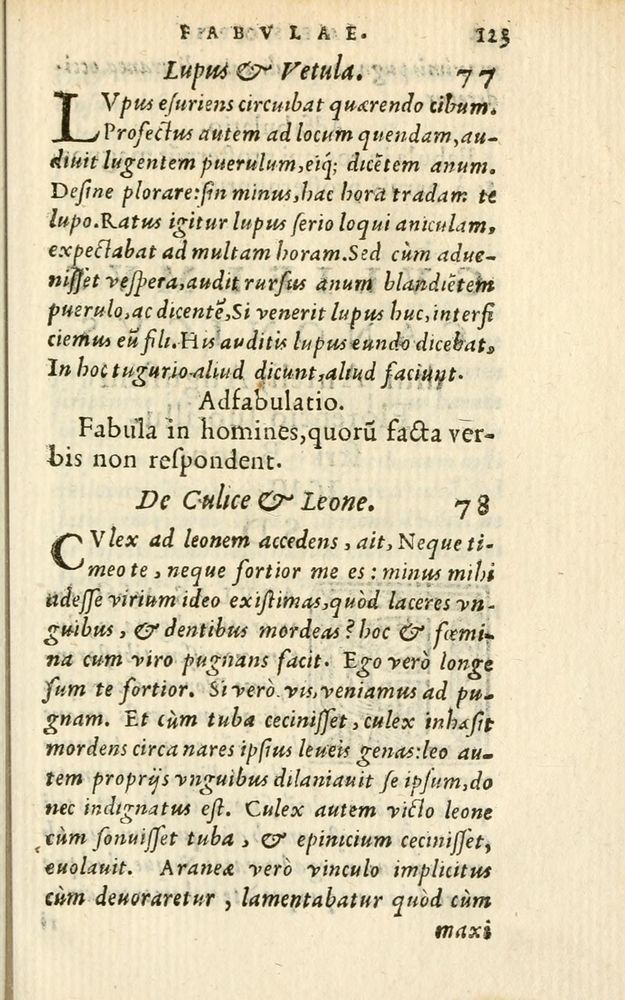 FABVLAE. 123
Lupus & Vetula. 77
LVpus eſuriens circuibat quærendo cibum.
Profectus autem ad locum quendam, au-
diuit lugentem puerulum, eiq; dicētem anum.
Deſine plorare: ſin minus, hac hora tradam te
lupo. Ratus igitur lupus ſerio loqui aniculam,
expectabat ad multam horam. Sed cùm adue-
niſſet veſpera, audit rurſus anum blandiētem
puerulo, ac dicentē, Si venerit lupus huc, interfi
ciemus eū fili. His auditis lupus eundo dicebat,
In hoc tugurio aliud dicunt, aliud faciunt.
Adfabulatio.
Fabula in homines, quorū facta ver-
bis non reſpondent.
De Culice & Leone. 78
CVlex ad leonem accedens, ait, Neque ti-
meo te, neque fortior me es: minus mihi
adeſſe virium ideo exiſtimas, quòd laceres vn-
guibus, & dentibus mordeas? hoc & fœmi-
na cum viro pugnans facit. Ego verò longe
ſum te fortior. Si verò vis, veniamus ad pu-
gnam. Et cùm tuba ceciniſſet, culex inhæſit
mordens circa nares ipſius leueis genas: leo au-
tem proprijs vnguibus dilaniauit ſe ipſum, do
nec indignatus eſt. Culex autem victo leone
cùm ſonuiſſet tuba, & epinicium ceciniſſet,
euolauit. Araneæ verò vinculo implicitus
cùm deuoraretur, lamentabatur quòd cùm
maxi